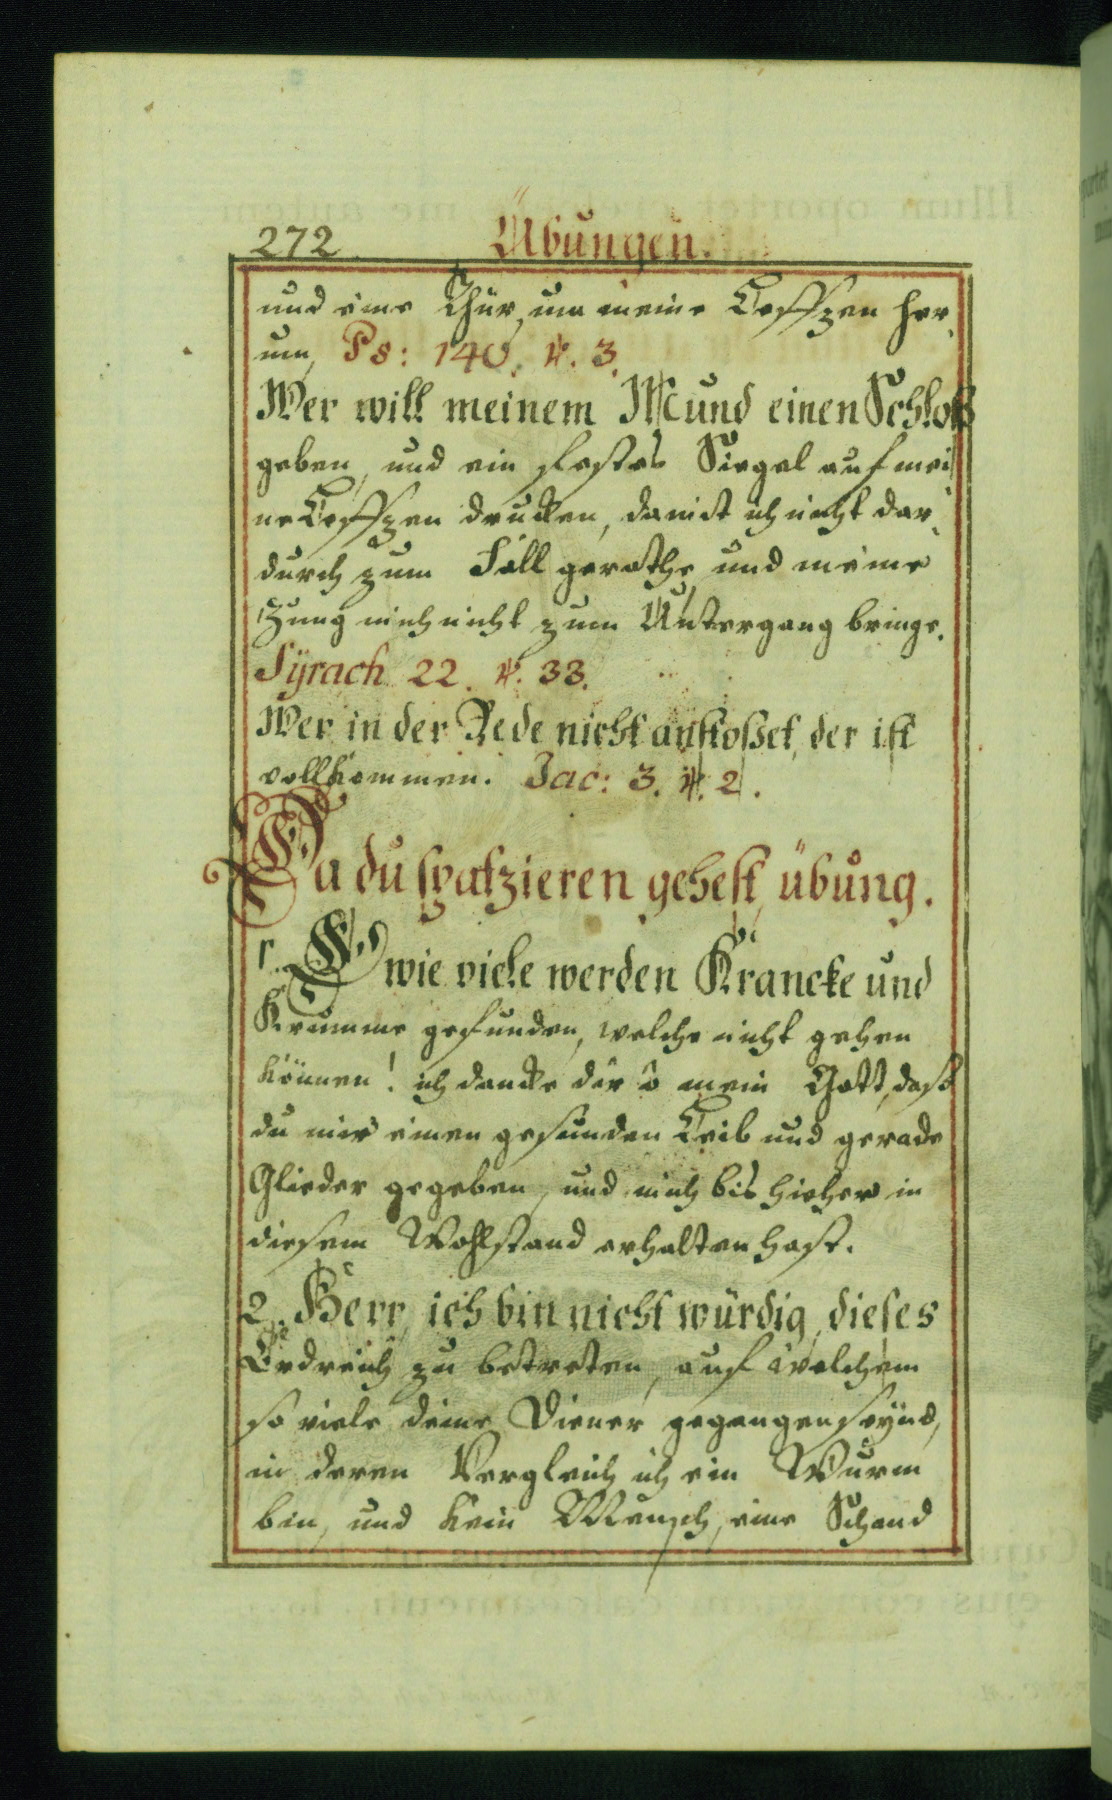 272. Übungen.
und eine Thür, um meine Leffzen her-
um, Ps: 140. v. 3.
Wer will meinem Mund einen Schloß
geben, und ein festes Siegel auf mei-
ne Leffzen drucken, damit ich nicht dar-
durch zum Fall gerathe und meine
Zung mich nicht zum Untergang bringe.
Sÿrach 22. v. 33.
Wer in der Rede nicht anstosset, der ist
vollkommen. Jac: 3. v. 2.
Da du spatzieren gehest, übung.
1. O wie viele werden Krancke und
Krumme gefunden, welche nicht gehen
können! ich dancke dir ô mein Gott, daß
du mir einen gesunden Leib und gerade
Glieder gegeben, und mich bis hieher in
diesem Wohlstand erhalten hast.
2. Herr, ich bin nicht würdig, dieses
Erdreich zu betreten, auf welchem
so viele deine Diener gegangen seÿnd,
in deren Vergleich ich ein Wurm
bin, und kein Mensch, eine Schand